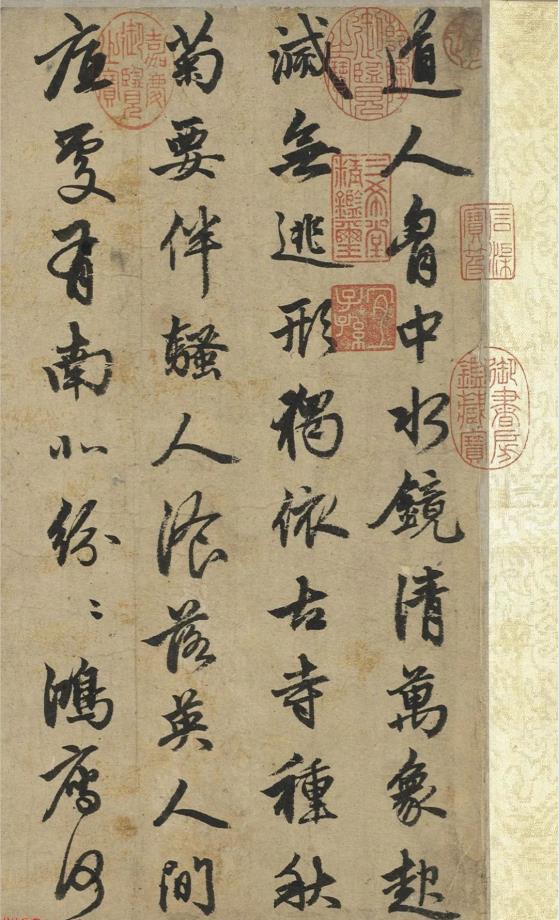 石渠寶笈
御書房鑑藏寶
道人胷中水鏡清萬象起
乾隆御覽之寶
三希堂精鑑璽
宜子孫
滅無逃形獨依古寺種秋
菊要伴騷人湌落英人間
嘉慶御覽之寶
底處有南北紛〻鴻鴈何